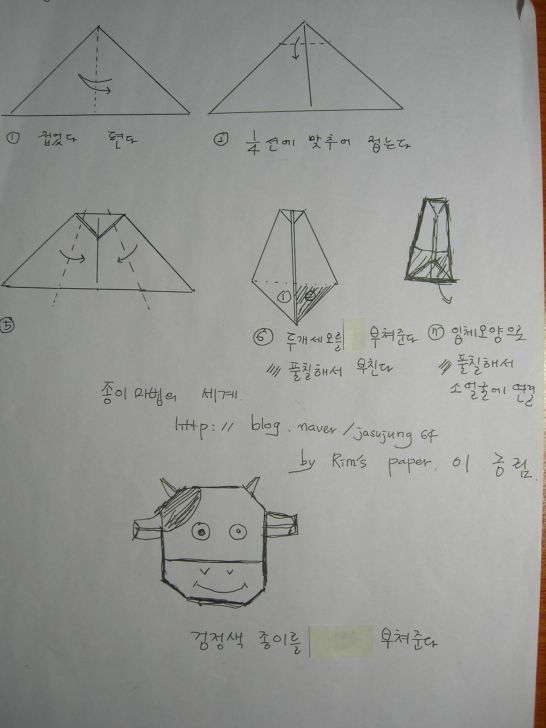 ① 접었다 편다
② 1/4 선에 맞추어 접는다
⑤
⑥ 두개 세모를 부쳐준다
풀칠해서 부친다
① ②
⑦ 입체모양으로
풀칠해서
소얼굴에 연결
종이 마법의 세계.
http:// blog.naver./jasujung64
by Rim's paper. 이 종 림.
검정색 종이를 부쳐준다